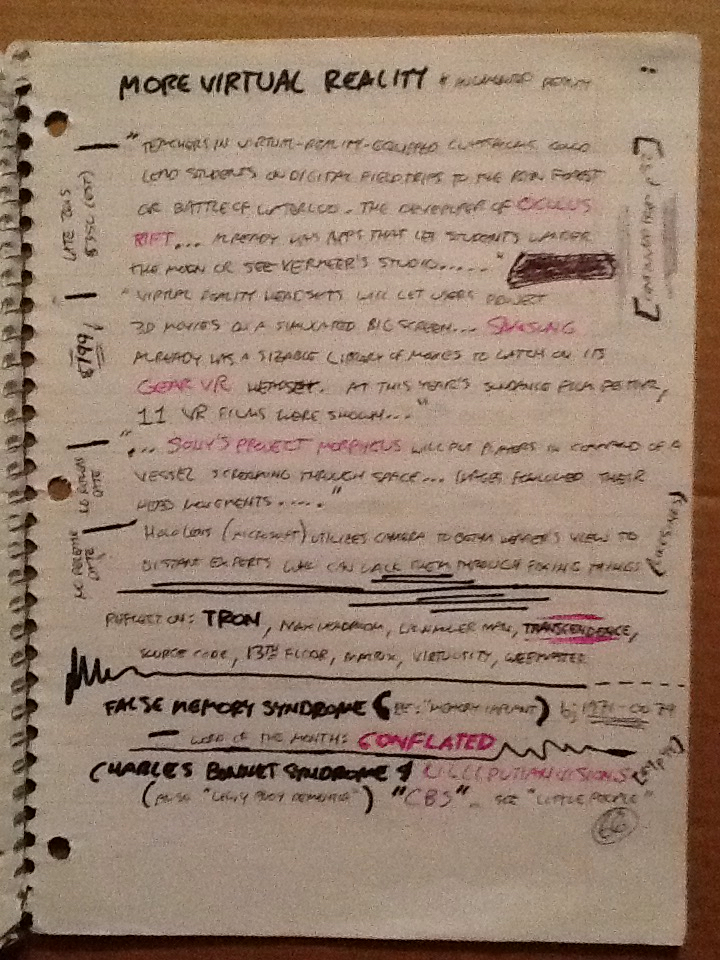 MORE VIRTUAL REALITY & AUGMENTED REALITY
"TEACHERS IN VIRTUAL-REALITY-EQUIPPED CLASSROOMS COULD
LEAD STUDENTS ON DIGITAL FIELD TRIPS TO THE RAIN FOREST
OR BATTLE OF WATERLOO. THE DEVELOPER OF OCULUS
RIFT... ALREADY HAS APPS THAT LET STUDENTS WANDER
THE MOON OR SEE VERMEER'S STUDIO....."
LATE 2015
$350 (EST)
[CONTINUED FROM P.
"VIRTUAL REALITY HEADSETS WILL LET USERS PROJECT
3D MOVIES ON A SIMULATED BIG SCREEN... SAMSUNG
ALREADY HAS A SIZABLE LIBRARY OF MOVIES TO WATCH ON ITS
GEAR VR HEADSET. AT THIS YEAR'S SUNDANCE FILM FESTIVAL,
11 VR FILMS WERE SHOWN..."
$199!
"... SONY'S PROJECT MORPHEUS WILL PUT PLAYERS IN COMMAND OF A
VESSEL SCREAMING THROUGH SPACE... IMAGES FOLLOWED THEIR
HEAD MOVEMENTS....."
NO RELEASE
DATE
HOLOLENS (MICROSOFT) UTILIZES CAMERA TO BEAM WEARER'S VIEW TO
DISTANT EXPERTS WHO CAN WALK THEM THROUGH FIXING THINGS
NO RELEASE
DATE
REFLECT ON: TRON, MAX HEADROOM, LAWNMOWER MAN, TRANSCENDENCE,
SOURCE CODE, 13TH FLOOR, MATRIX, VIRTUOSITY,
FALSE MEMORY SYNDROME (RE: "MEMORY IMPLANT")
— WORD OF THE MONTH: CONFLATED
CHARLES BONNET SYNDROME & LILLIPUTIAN VISIONS
(ALSO "LEWY BODY DEMENTIA") "CBS". SEE "LITTLE PEOPLE"
66